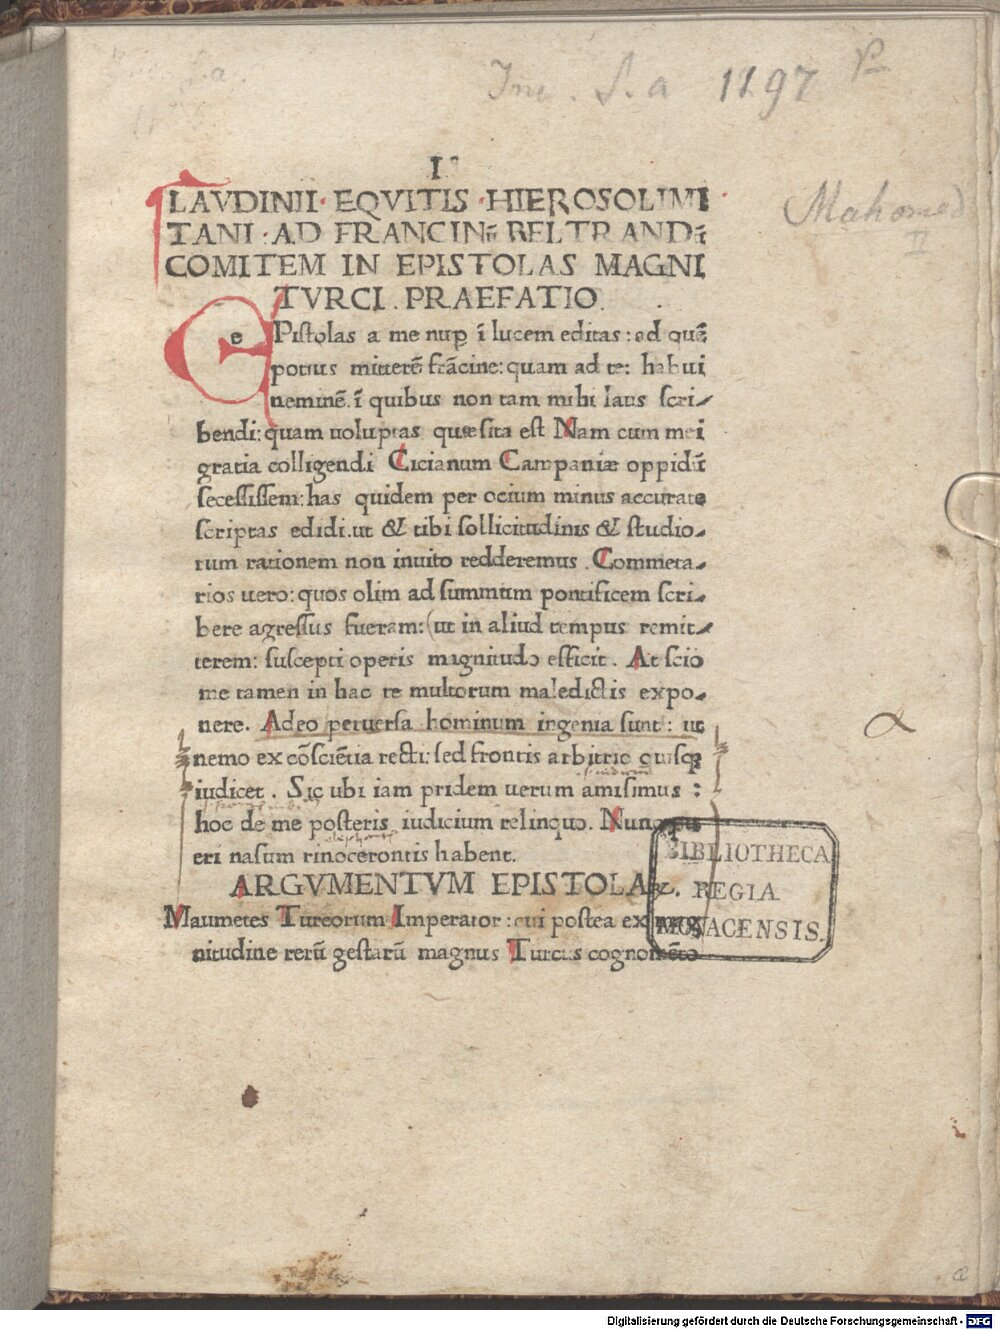 Inc. S. a 1197
Mahomed
II
I
LAVDINII · EQVITIS · HIEROSOLIMI
TANI · AD FRANCINũ BELTRANDũ
COMITEM IN EPISTOLAS MAGNI
TVRCI . PRAEFATIO.
e PIstolas a me nup ĩ lucem editas : ad quẽ
potius mitterẽ frãcine: quam ad te: habui
neminẽ. ĩ quibus non tam mihi laus scri⸗
bendi: quam uoluptas quæsita est Nam cum mei
gratia colligendi Cicianum Campaniæ oppidũ
secessissem: has quidem per ocium minus accurate
scriptas edidi. ut & tibi sollicitudinis & studio⸗
rum rationem non inuito redderemus . Commeta⸗
rios uero: quos olim ad summum pontificem scri⸗
bere agressus fueram: (ut in aliud tempus remit⸗
terem: suscepti operis magnitudo efficit . At scio
me tamen in hac re multorum maledictis expo⸗
nere. Adeo peruersa hominum ingenia sunt: ut
nemo ex cõsciẽtia recti: sed frontis arbitrio quisqꝫ
iudicet . Sic ubi iam pridem uerum amisimus :
hoc de me posteris iudicium relinquo. Nunc pu
eri nasum rinocerontis habent.
ARGVMENTVM EPISTOLAꝝ.
Maumetes Turcorum Imperator : cui postea ex mag
nitudine rerũ gestarũ magnus Turcus cognomẽto
BIBLIOTHECA
REGIA
MONACENSIS.
Digitalisierung gefördert durch die Deutsche Forschungsgemeinschaft - DFG